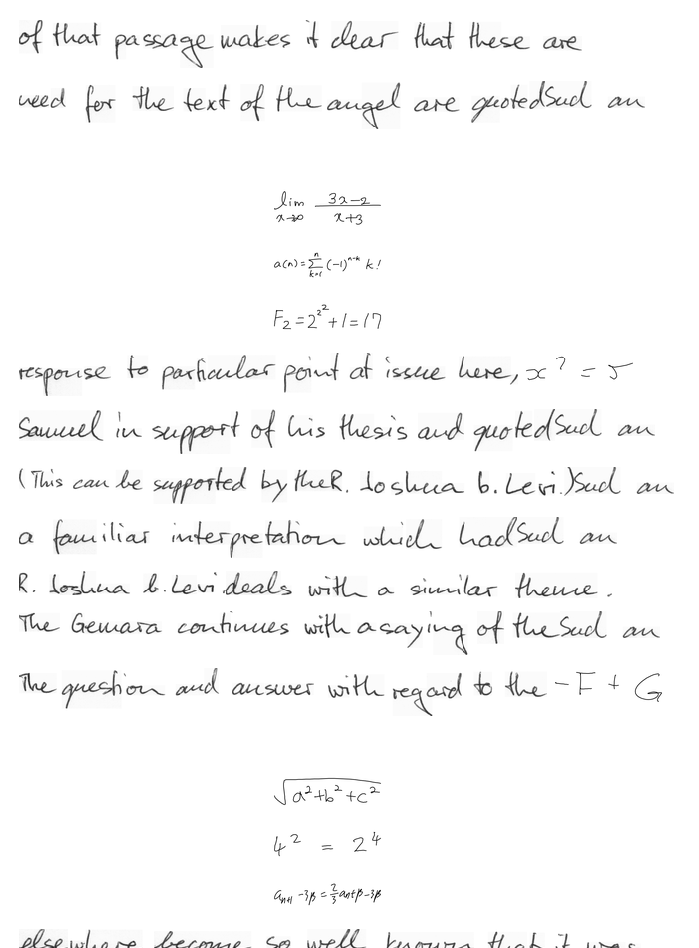 of that passage makes it clear that these are
need for the text of the angel are quoted Such an
lim x→∞ (3x-2)/(x+3)
a(n) = ∑_{k=1}^{n} (-1)^{n-k} k!
F₂ = 2^{2^2} + 1 = 17
response to particular point at issue here, x^? = 5
Samuel in support of his thesis and quoted Such an
(This can be supported by the R. Joshua b. Levi.) Such an
a familiar interpretation which had Such an
R. Joshua b. Levi deals with a similar theme.
The Gemara continues with a saying of the Such an
The question and answer with regard to the -F + G
√(a²+b²+c²)
4² = 2⁴
a_{n+1} - 3β = (2/3)a_n + β - 3β
elsewhere become so well known that it was